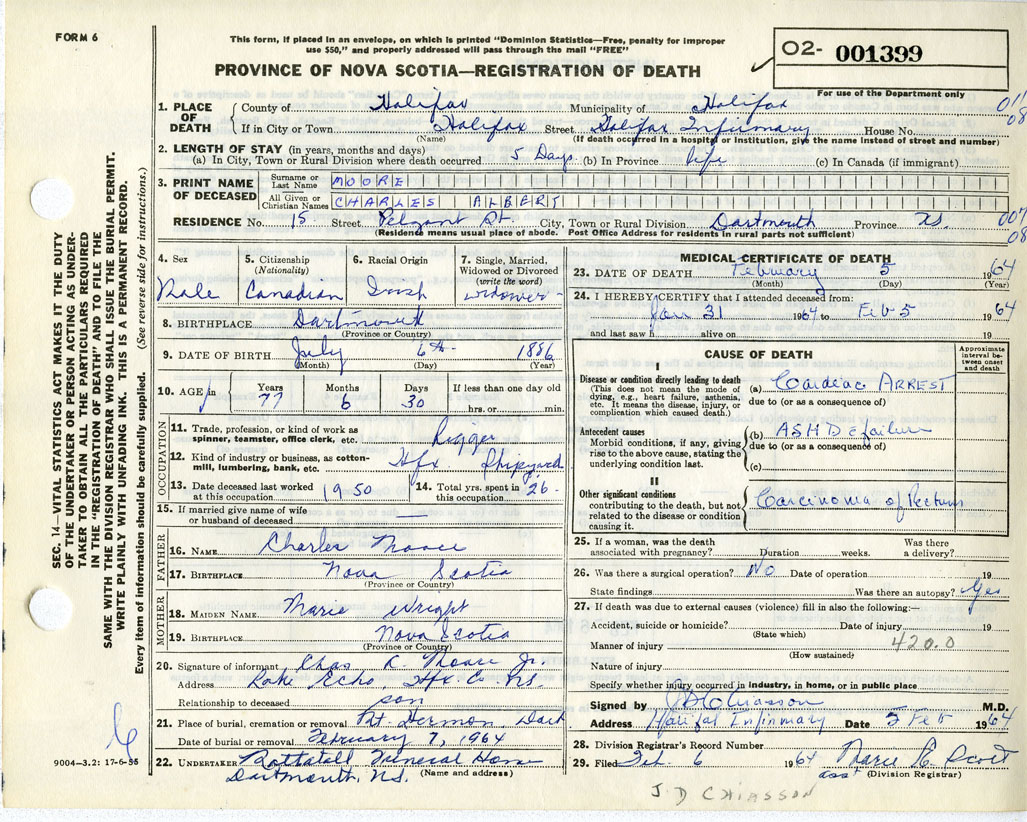 FORM 6
This form, if placed in an envelope, on which is printed "Dominion Statistics—Free, penalty for improper
use $50," and properly addressed will pass through the mail "FREE"
PROVINCE OF NOVA SCOTIA—REGISTRATION OF DEATH
02- 001399
For use of the Department only
SEC. 14—VITAL STATISTICS ACT MAKES IT THE DUTY
OF THE UNDERTAKER OR PERSON ACTING AS UNDER-
TAKER TO OBTAIN ALL THE PARTICULARS REQUIRED
IN THE "REGISTRATION OF DEATH" AND TO FILE THE
SAME WITH THE DIVISION REGISTRAR WHO SHALL ISSUE THE BURIAL PERMIT.
WRITE PLAINLY WITH UNFADING INK. THIS IS A PERMANENT RECORD.
Every item of information should be carefully supplied. (See reverse side for instructions.)
1. PLACE OF DEATH County of Halifax Municipality of Halifax 011
If in City or Town Halifax Street Halifax Infirmary House No. 08
(Name) (If death occurred in a hospital or institution, give the name instead of street and number)
2. LENGTH OF STAY (in years, months and days)
(a) In City, Town or Rural Division where death occurred 5 Days (b) In Province life (c) In Canada (if immigrant)
3. PRINT NAME OF DECEASED Surname or Last Name MOORE
All Given or Christian Names CHARLES ALBERT
RESIDENCE No. 15 Street St. City, Town or Rural Division Dartmouth Province NS. 007
(Residence means usual place of abode. Post Office Address for residents in rural parts not sufficient) 08
4. Sex Male
5. Citizenship (Nationality) Canadian
6. Racial Origin Irish
7. Single, Married, Widowed or Divorced (write the word) widower
8. BIRTHPLACE Dartmouth
(Province or Country)
9. DATE OF BIRTH July 6th 1886
(Month) (Day) (Year)
10. AGE Years 77 Months 6 Days 30 If less than one day old hrs. or min.
OCCUPATION
11. Trade, profession, or kind of work as spinner, teamster, office clerk, etc. Rigger
12. Kind of industry or business, as cotton-mill, lumbering, bank, etc. Hfx Shipyard
13. Date deceased last worked at this occupation 1950
14. Total yrs. spent in this occupation 26
15. If married give name of wife or husband of deceased —
FATHER
16. NAME Charles Moore
17. BIRTHPLACE Nova Scotia
(Province or Country)
MOTHER
18. MAIDEN NAME Marie Wright
19. BIRTHPLACE Nova Scotia
(Province or Country)
20. Signature of informant Chas K. Moore Jr.
Address Lake Echo Hfx Co. NS.
Relationship to deceased son
21. Place of burial, cremation or removal Mt Hermon Dart
Date of burial or removal February 7, 1964
22. UNDERTAKER Funeral Home
Dartmouth, NS. (Name and address)
9004-3.2: 17-6-55
MEDICAL CERTIFICATE OF DEATH
23. DATE OF DEATH February 5 1964
(Month) (Day) (Year)
24. I HEREBY CERTIFY that I attended deceased from:
Jan 31 1964 to Feb 5 1964
and last saw h alive on 19
CAUSE OF DEATH
Approximate interval between onset and death
I
Disease or condition directly leading to death
(This does not mean the mode of dying, e.g., heart failure, asthenia, etc. It means the disease, injury, or complication which caused death.)
(a) Cardiac ARREST
due to (or as a consequence of)
Antecedent causes
Morbid conditions, if any, giving rise to the above cause, stating the underlying condition last.
(b) ASHD failure
due to (or as a consequence of)
(c)
II
Other significant conditions
contributing to the death, but not related to the disease or condition causing it.
Carcinoma of Rectum
25. If a woman, was the death associated with pregnancy? Duration weeks. Was there a delivery?
26. Was there a surgical operation? No Date of operation 19
State findings Was there an autopsy? Yes
27. If death was due to external causes (violence) fill in also the following:—
Accident, suicide or homicide? Date of injury 19
(State which)
Manner of injury 420.0
(How sustained)
Nature of injury
Specify whether injury occurred in industry, in home, or in public place
Signed by JD Chiasson M.D.
Address Halifax Infirmary Date 5 Feb 1964
28. Division Registrar's Record Number
29. Filed Feb. 6 1964 Marie Scott
asst (Division Registrar)
J D CHIASSON